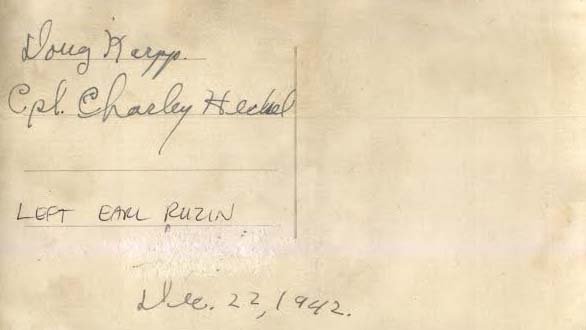 Doug Karpp.
Cpl. Charley Heckel
LEFT EARL RUZIN
Dec. 22, 1942.